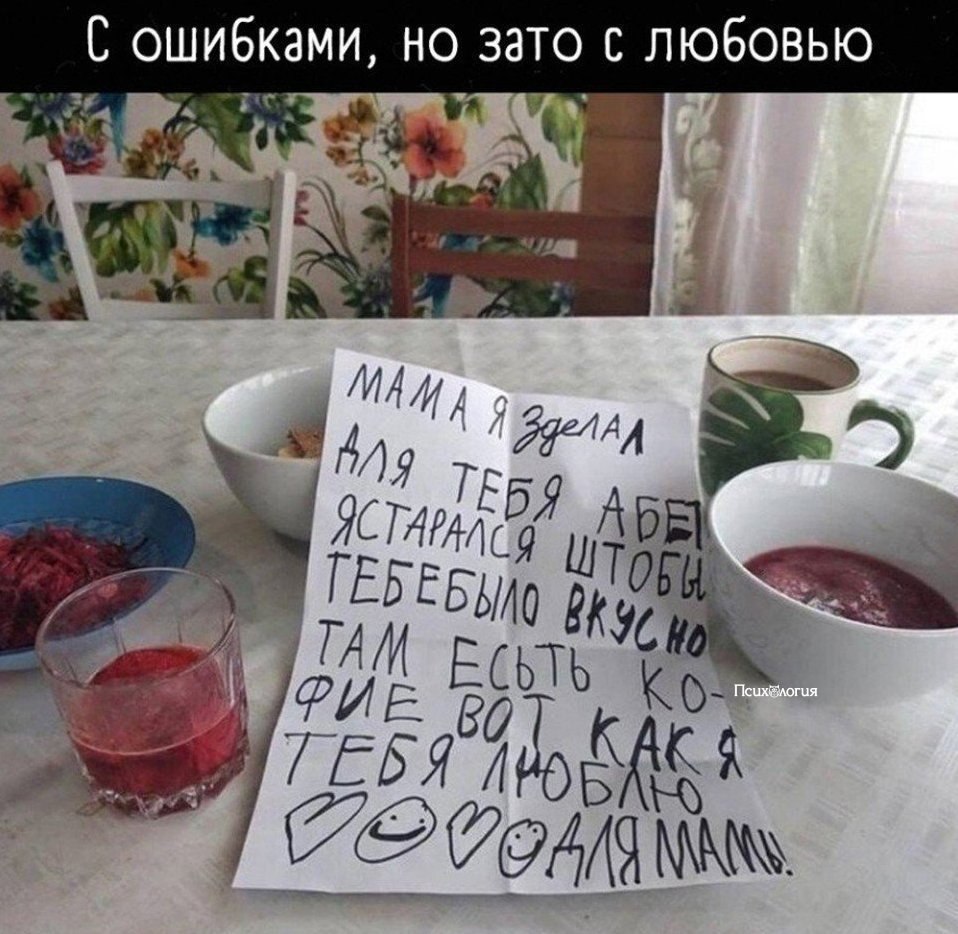 С ошибками, но зато с любовью
МАМА Я ЗдеЛАЛ
ДЛЯ ТЕБЯ АБЕТ
ЯСТАРАЛСЯ ШТОБЫ
ТЕБЕБЫЛО ВКУСНО
ТАМ ЕСЬТЬ КО-
ФИЕ ВОТ КАК Я
ТЕБЯ ЛЮБЛЮ
ДЛЯ МАМЫ!
Психология